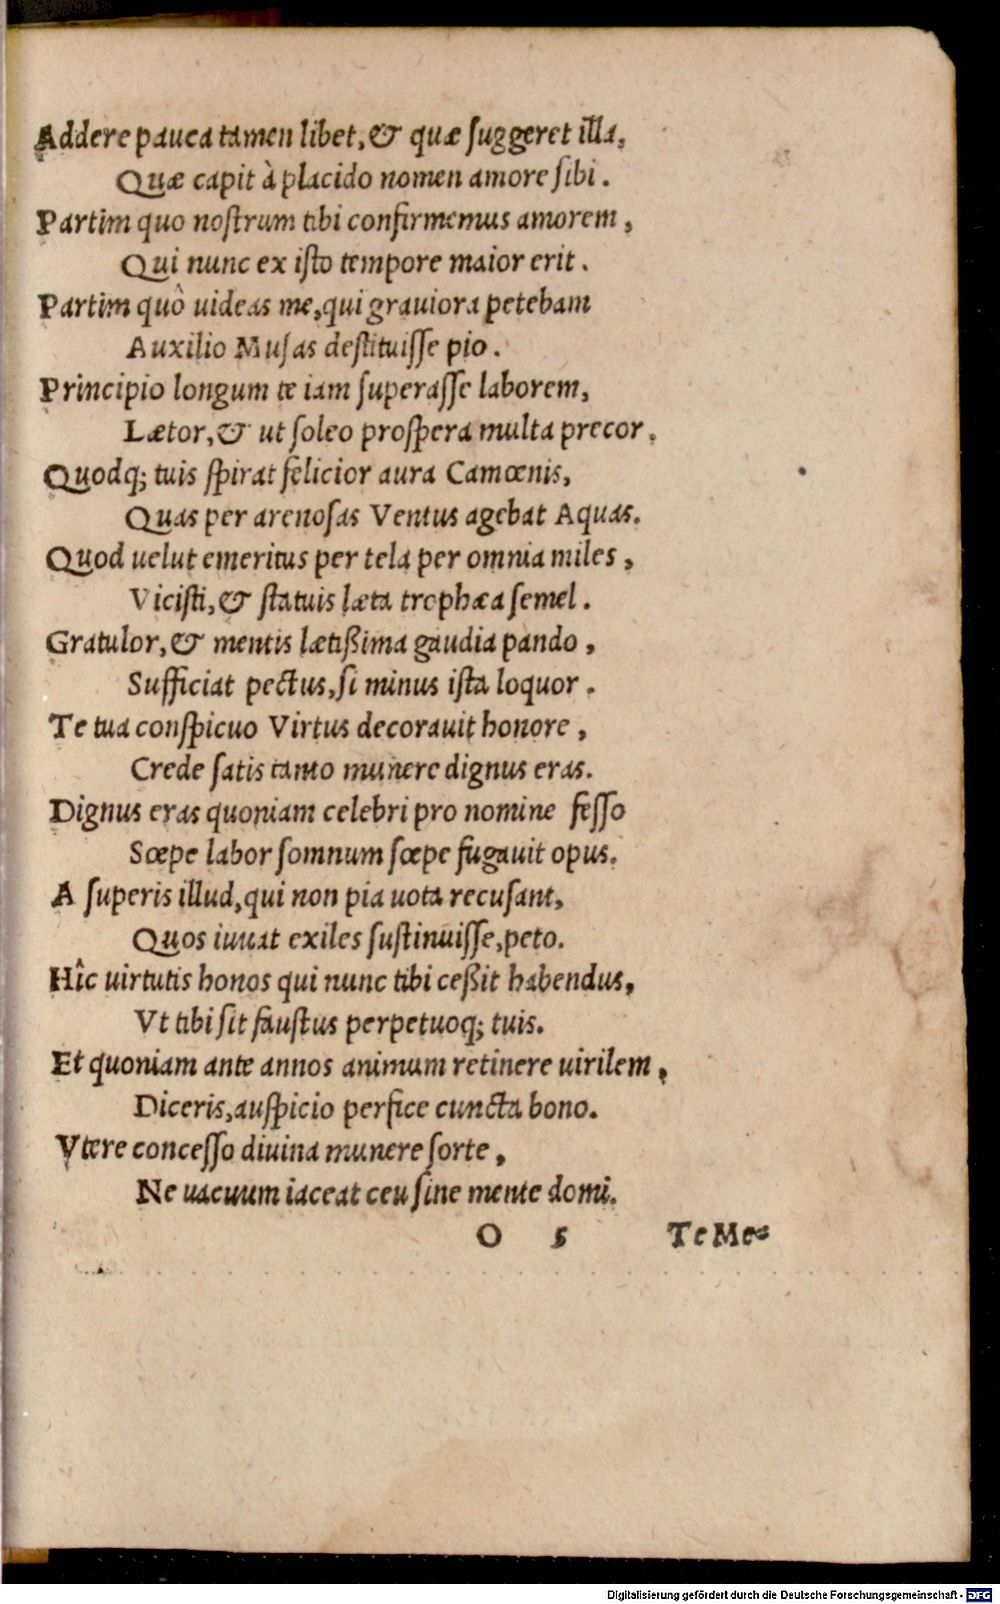 Addere pauca tamen libet, & quæ ſuggeret illa,
Quæ capit à placido nomen amore ſibi.
Partim quo noſtrum tibi confirmemus amorem,
Qui nunc ex iſto tempore maior erit.
Partim quô uideas me, qui grauiora petebam
Auxilio Muſas deſtituiſſe pio.
Principio longum te iam ſuperaſſe laborem,
Lætor, & ut ſoleo proſpera multa precor.
Quodq; tuis ſpirat felicior aura Camœnis,
Quas per arenoſas Ventus agebat Aquas.
Quod uelut emeritus per tela per omnia miles,
Viciſti, & ſtatuis læta trophæa ſemel.
Gratulor, & mentis lætißima gaudia pando,
Sufficiat pectus, ſi minus iſta loquor.
Te tua conſpicuo Virtus decorauit honore,
Crede ſatis tanto munere dignus eras.
Dignus eras quoniam celebri pro nomine feſſo
Sœpe labor ſomnum ſœpe fugauit opus.
A ſuperis illud, qui non pia uota recuſant,
Quos iuuat exiles ſuſtinuiſſe, peto.
Hîc uirtutis honos qui nunc tibi ceßit habendus,
Vt tibi ſit fauſtus perpetuoq; tuis.
Et quoniam ante annos animum retinere uirilem,
Diceris, auſpicio perfice cuncta bono.
Vtere conceſſo diuina munere ſorte,
Ne uacuum iaceat ceu ſine mente domi.
O 5 Te Me-
Digitalisierung gefördert durch die Deutsche Forschungsgemeinschaft - DFG